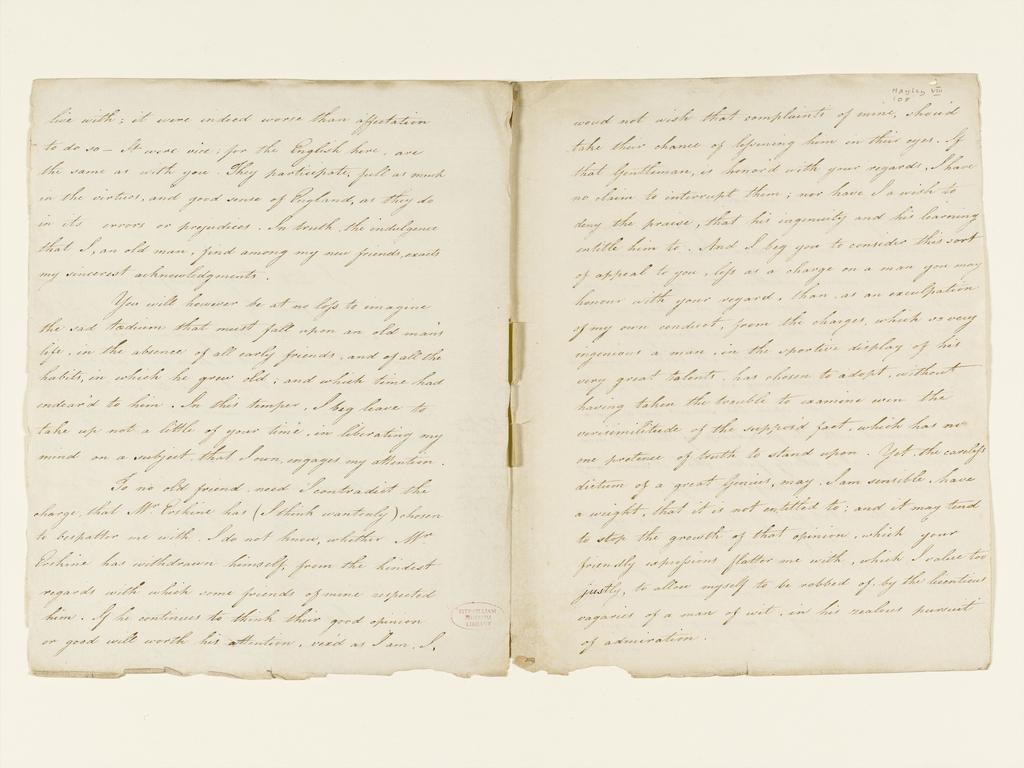 live with; it were indeed worse than affectation
to do so – It were vice: for the English here, are
the same as with you. They participate, full as much
in the virtues, and good sense of England, as they do
in its errors or prejudices. In truth, the indulgence
that I, an old man, find among my new friends, exacts
my sincerest acknowledgments.
You will however be at no loss to imagine
the sad tædium that must fall upon an old man's
life, in the absence of all early friends, and of all the
habits, in which he grew old; and which time had
endear'd to him. In this temper, I beg leave to
take up not a little of your time, in liberating my
mind on a subject, that I own, engages my attention.
To no old friend, need I contradict the
charge, that Mr Erskine has (I think wantonly) chosen
to bespatter me with. I do not know, whether Mr
Erskine has withdrawn himself, from the kindest
regards with which some friends of mine respected
him. If he continues to think their good opinion
or good will worth his attention, vex'd as I am, I,
FITZWILLIAM
MUSEUM
LIBRARY
Hayley VIII
108
wou'd not wish that complaints of mine, shou'd
take their chance of lessening him in their eyes. If
that Gentleman, is honor'd with your regards, I have
no claim to interrupt them; nor have I a wish to
deny the praise, that his ingenuity and his learning
entitle him to. And I beg you to consider this sort
of appeal to you, less as a charge on a man you may
honour with your regard, than as an exculpation
of my own conduct, from the charges, which so very
ingenious a man, in the sportive display of his
very great talents, has chosen to adopt, without
having taken the trouble to examine even the
verisimilitude of the suppos'd fact, which has no
one pretence of truth to stand upon. Yet the careless
dictum of a great Genius, may, I am sensible, have
a weight, that it is not entitled to; and it may tend
to stop the growth of that opinion, which your
friendly expressions flatter me with, which I value too
justly, to allow myself to be robbed of, by the licentious
vagaries of a man of wit, in his zealous pursuit
of admiration.